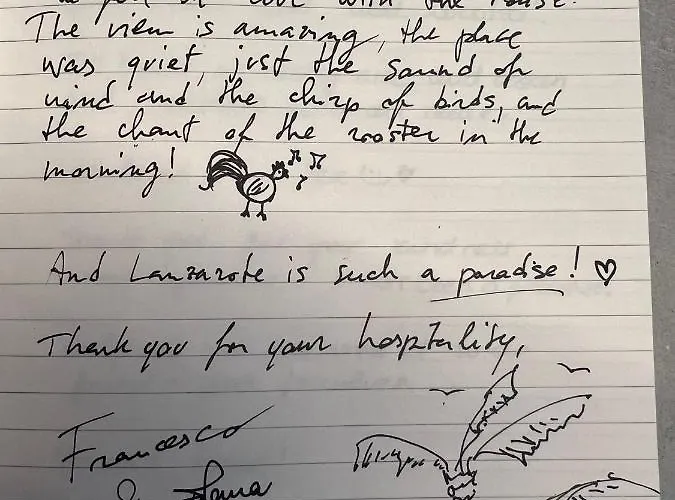 with the house.
The view is amazing, the place
was quiet, just the sound of
wind and the chirp of birds, and
the chant of the rooster in the
morning!
And Lanzarote is such a paradise! ♡
Thank you for your hospitality,
Francesco
& Anna